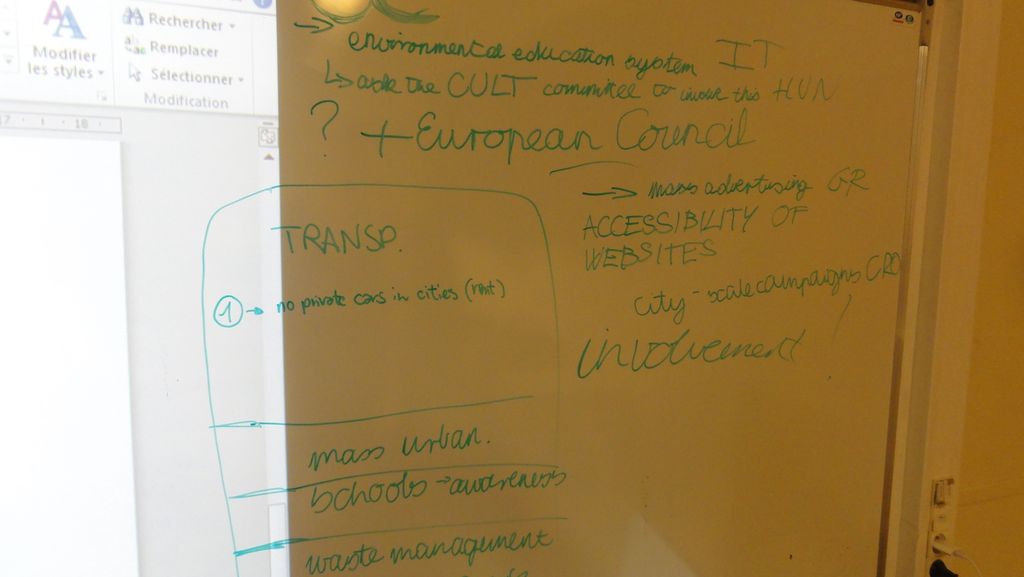 Rechercher
Remplacer
Sélectionner
Modifier
les styles
Modification
17 18
→ environmental education system IT
↳ ask the CULT committee to involve this HUN
? + European Council
→ mass advertising GR
ACCESSIBILITY OF
WEBSITES
city-scale campaigns CRO
involvement
TRANSP.
1 → no private cars in cities (rent)
mass urban.
schools → awareness
waste management